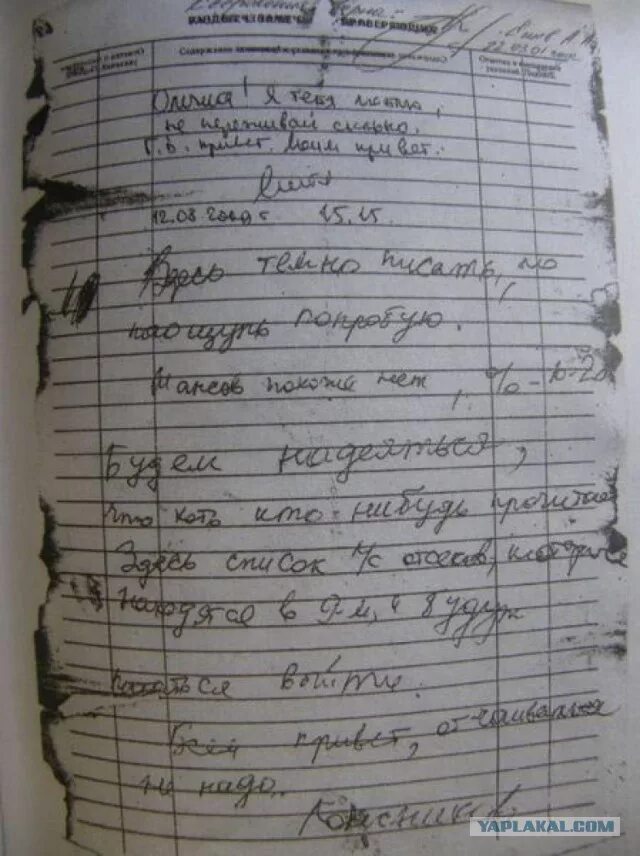 22.03.01
Олечка! Я тебя люблю,
не переживай сильно.
Г.В. привет. Моим привет.
Митя
12.08.2000 г 15.15
Здесь темно писать, но
наощупь попробую.
Шансов похоже нет, %-10-20
Будем надеяться,
что хоть кто нибудь прочитает
Здесь список л/с отсеков, которые
находятся в 9-м, и будут
пытаться выйти.
Всем привет, отчаиваться
не надо.
Колесников
YAPLAKAL.COM